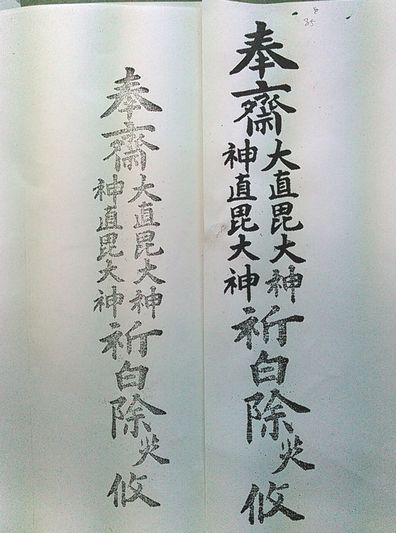 8
35
奉齋
大直毘大神
神直毘大神
祈白除攸
奉齋
大直毘大神
神直毘大神
祈白除攸